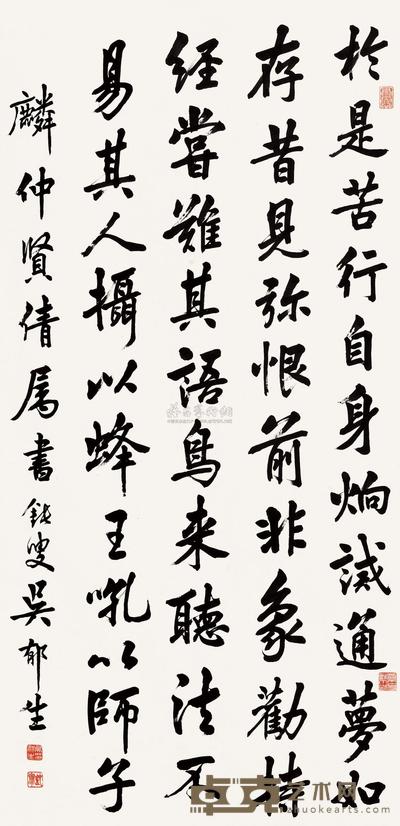 於是苦行自身炯誡通夢如
存昔見弥恨前非象勸持
經嘗難其語鳥来聽法不
易其人攝以蜂王吼以師子
麟仲賢倩属書鈍叟吴郁生
艺术网
zhuokearts.com